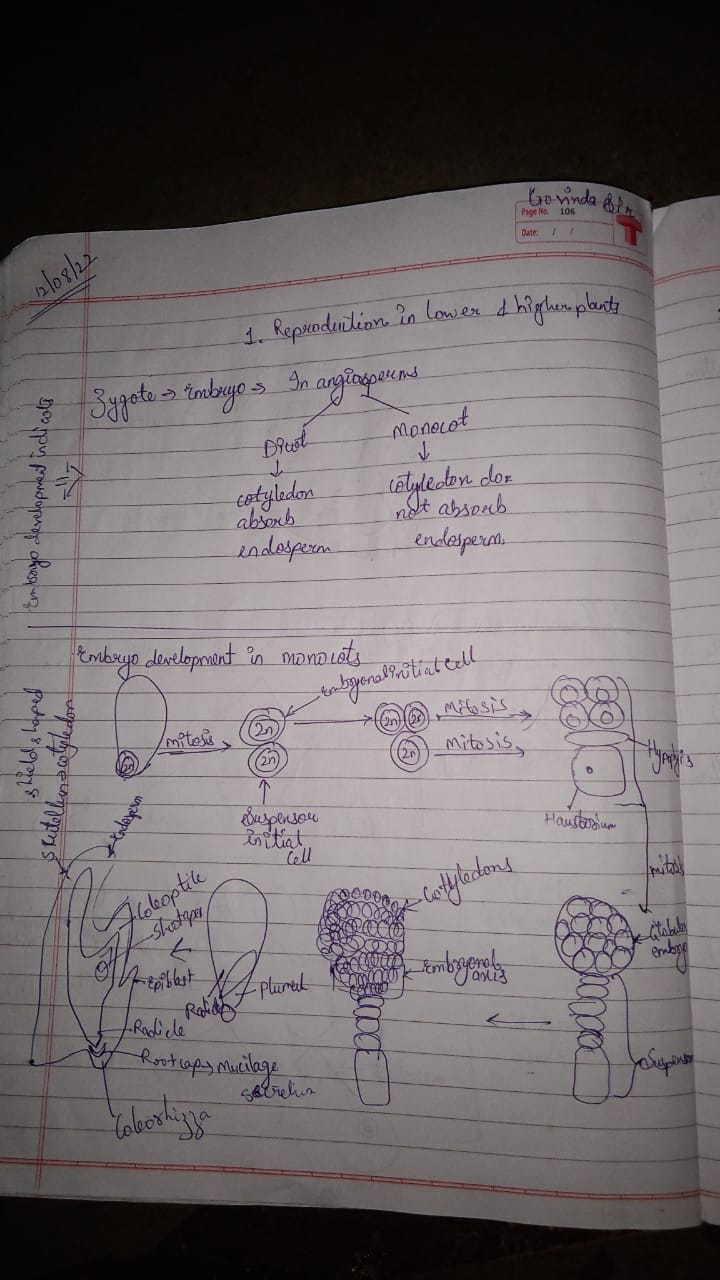 Govinda Sir
Page No. 106
Date: / /
12/08/22
1. Reproduction in lower & higher plants
Zygote → Embryo → In angiosperms
Embryo development in dicots
Dicot
Monocot
↓
↓
cotyledon
absorb
endosperm
cotyledon does
not absorb
endosperm.
Embryo development in monocots
Embryonal initial cell
2n
mitosis
2n
2n
2n
2n
2n
mitosis
mitosis
Suspensor
initial
cell
Hypophysis
Haustorium
mitosis
shield shaped
Scutellum → cotyledon
Endosperm
Coleoptile
Shootapex
Epiblast
Radicle
Rootcap → mucilage
secretion
Coleorhizza
Radicle
Plumul
Cotyledons
Embryonal
axis
Globular
embryo
Suspensor